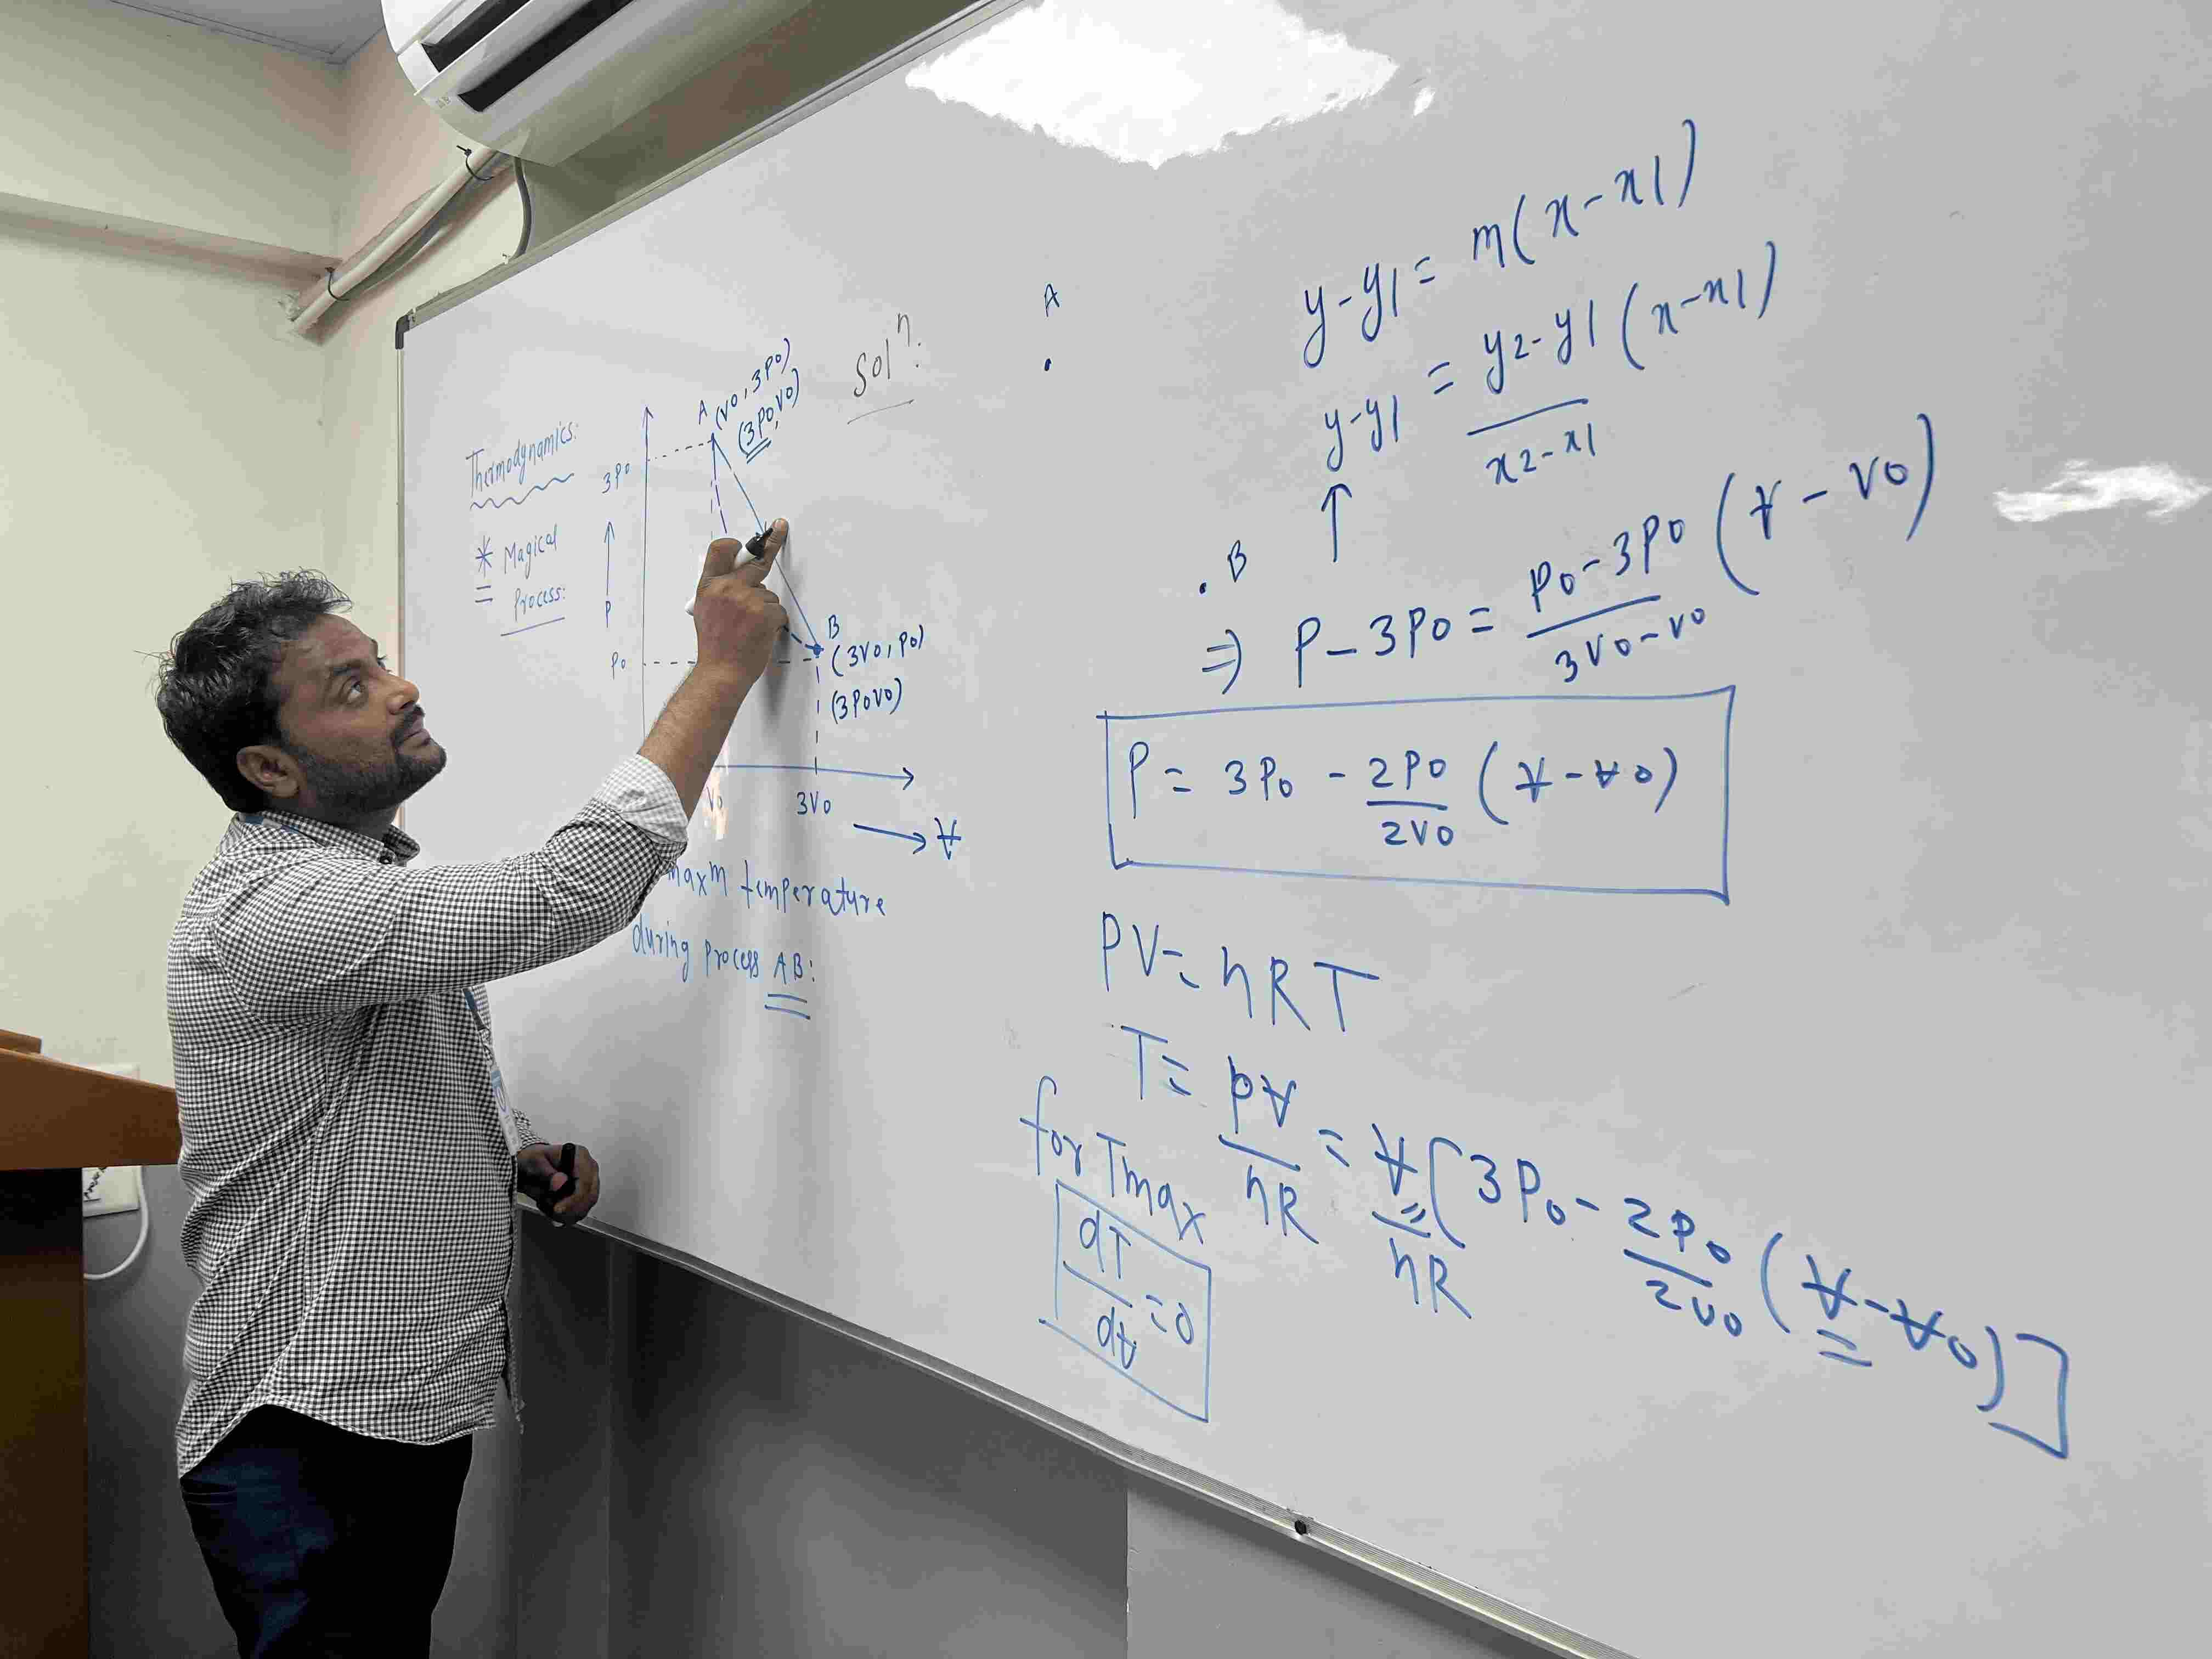 Thermodynamics:
* Magical
Process:
3P0
P
P0
A (V0, 3P0)
(3P0V0)
B
(3V0, P0)
(3P0V0)
V0
3V0
V
maxm temperature
during process AB:
Solⁿ:
A
B
y-y1 = m(x-x1)
y-y1 = y2-y1/x2-x1 (x-x1)
↑
⇒ P-3P0 = P0-3P0/3V0-V0 (V-V0)
P = 3P0 - 2P0/2V0 (V-V0)
PV = nRT
T = PV/nR = V/nR [3P0 - 2P0/2V0 (V-V0)]
for Tmax
dT/dV = 0